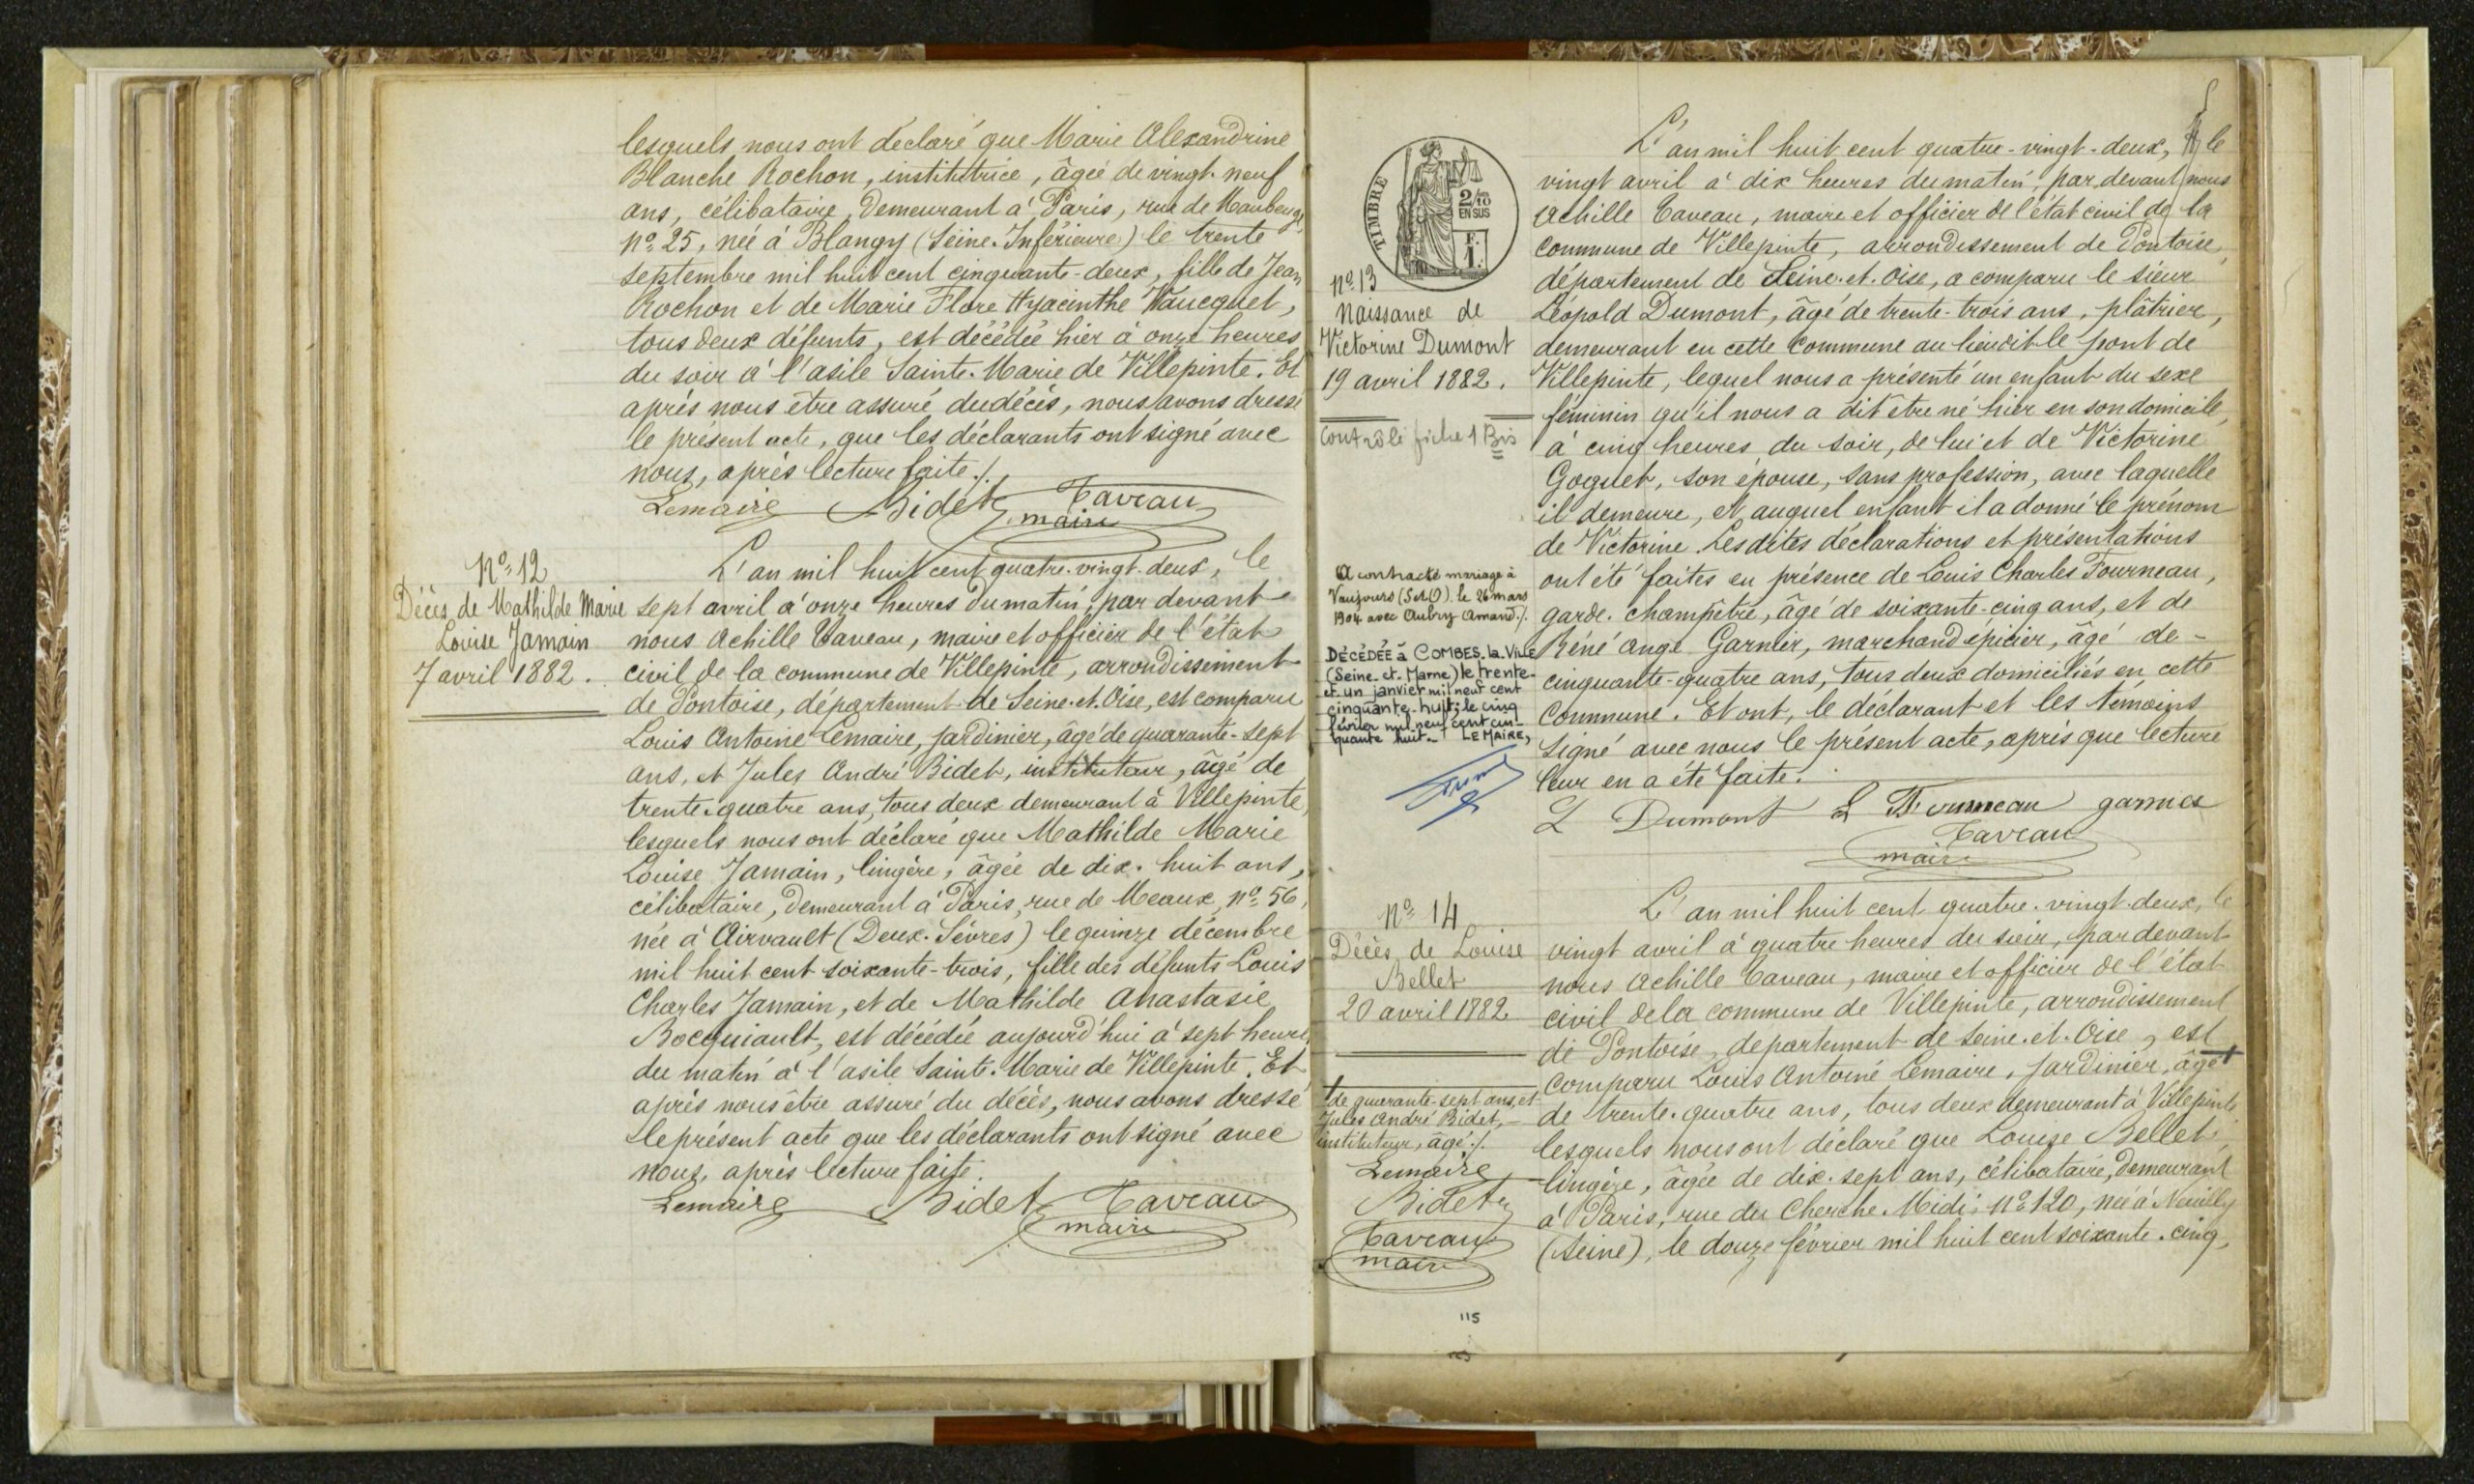 lesquels nous ont déclaré que Marie Alexandrine
Blanche Rochon, institutrice, âgée de vingt-neuf
ans, célibataire, demeurant à Paris, rue de Maubeuge,
No 25, née à Blangy (Seine-Inférieure) le trente
septembre mil huit cent cinquante-deux, fille de Jean
Rochon et de Marie Flore Hyacinthe Vaucquet,
tous deux défunts, est décédée hier à onze heures
du soir à l'asile Sainte-Marie de Villepinte. Et
après nous être assuré du décès, nous avons dressé
le présent acte, que les déclarants ont signé avec
nous, après lecture faite ./.
Lemaire Bidet Taveau
maire
No 12
Décès de Mathilde Marie
Louise Jamain
7 avril 1882.
L'an mil huit cent quatre-vingt-deux, le
sept avril à onze heures du matin, par devant
nous Achille Taveau, maire et officier de l'état
civil de la commune de Villepinte, arrondissement
de Pontoise, département de Seine-et-Oise, est comparu
Louis Antoine Lemaire, jardinier, âgé de quarante-sept
ans, et Jules André Bidet, instituteur, âgé de
trente-quatre ans, tous deux demeurant à Villepinte,
lesquels nous ont déclaré que Mathilde Marie
Louise Jamain, lingère, âgée de dix-huit ans,
célibataire, demeurant à Paris, rue de Meaux, No 56,
née à Airvault (Deux-Sèvres) le quinze décembre
mil huit cent soixante-trois, fille des défunts Louis
Charles Jamain, et de Mathilde Anastasie
Bocquiault, est décédée aujourd'hui à sept heures
du matin à l'asile Sainte-Marie de Villepinte. Et
après nous être assuré du décès, nous avons dressé
le présent acte que les déclarants ont signé avec
nous, après lecture faite.
Lemaire Bidet Taveau
maire
TIMBRE
2/10
EN SUS
F.
1.
No 13
Naissance de
Victorine Dumont
19 avril 1882.
Contrôlé fiche 1 Bis
A contracté mariage à
Vaujours (S&O) le 26 mars
1904 avec Aubry Amand ./.
DÉCÉDÉE à COMBES-la-VILLE
(Seine-et-Marne) le trente-
et-un janvier mil neuf cent
cinquante-huit; le cinq
février mil neuf cent cin-
quante huit. LEMAIRE,
L'an mil huit cent quatre-vingt-deux, le
vingt avril à dix heures du matin, par devant nous
Achille Taveau, maire et officier de l'état civil de la
commune de Villepinte, arrondissement de Pontoise,
département de Seine-et-Oise, a comparu le sieur
Léopold Dumont, âgé de trente-trois ans, plâtrier,
demeurant en cette commune au lieudit le pont de
Villepinte, lequel nous a présenté un enfant du sexe
féminin qu'il nous a dit être né hier en son domicile,
à cinq heures du soir, de lui et de Victorine
Goguet, son épouse, sans profession, avec laquelle
il demeure, et auquel enfant il a donné le prénom
de Victorine. Lesdites déclarations et présentations
ont été faites en présence de Louis Charles Fourneau,
garde-champêtre, âgé de soixante-cinq ans, et de
Réné Ange Garnier, marchand épicier, âgé de -
cinquante-quatre ans, tous deux domiciliés en cette
commune. Et ont, le déclarant et les témoins
signé avec nous le présent acte, après que lecture
leur en a été faite.
L Dumont L Fourneau garnier
Taveau
maire
No 14
Décès de Louise
Bellet
20 avril 1882
+ de quarante-sept ans, et
Jules André Bidet, -
instituteur, âgé ./.
Lemaire
Bidet
Taveau
maire
L'an mil huit cent quatre-vingt-deux, le
vingt avril à quatre heures du soir, par devant
nous Achille Taveau, maire et officier de l'état
civil de la commune de Villepinte, arrondissement
de Pontoise, département de Seine-et-Oise, est
comparu Louis Antoine Lemaire, jardinier, âgé +
de trente-quatre ans, tous deux demeurant à Villepinte
lesquels nous ont déclaré que Louise Bellet,
lingère, âgée de dix-sept ans, célibataire, demeurant
à Paris, rue du Cherche-Midi, No 120, née à Neuilly
(Seine), le douze février mil huit cent soixante-cinq,
115